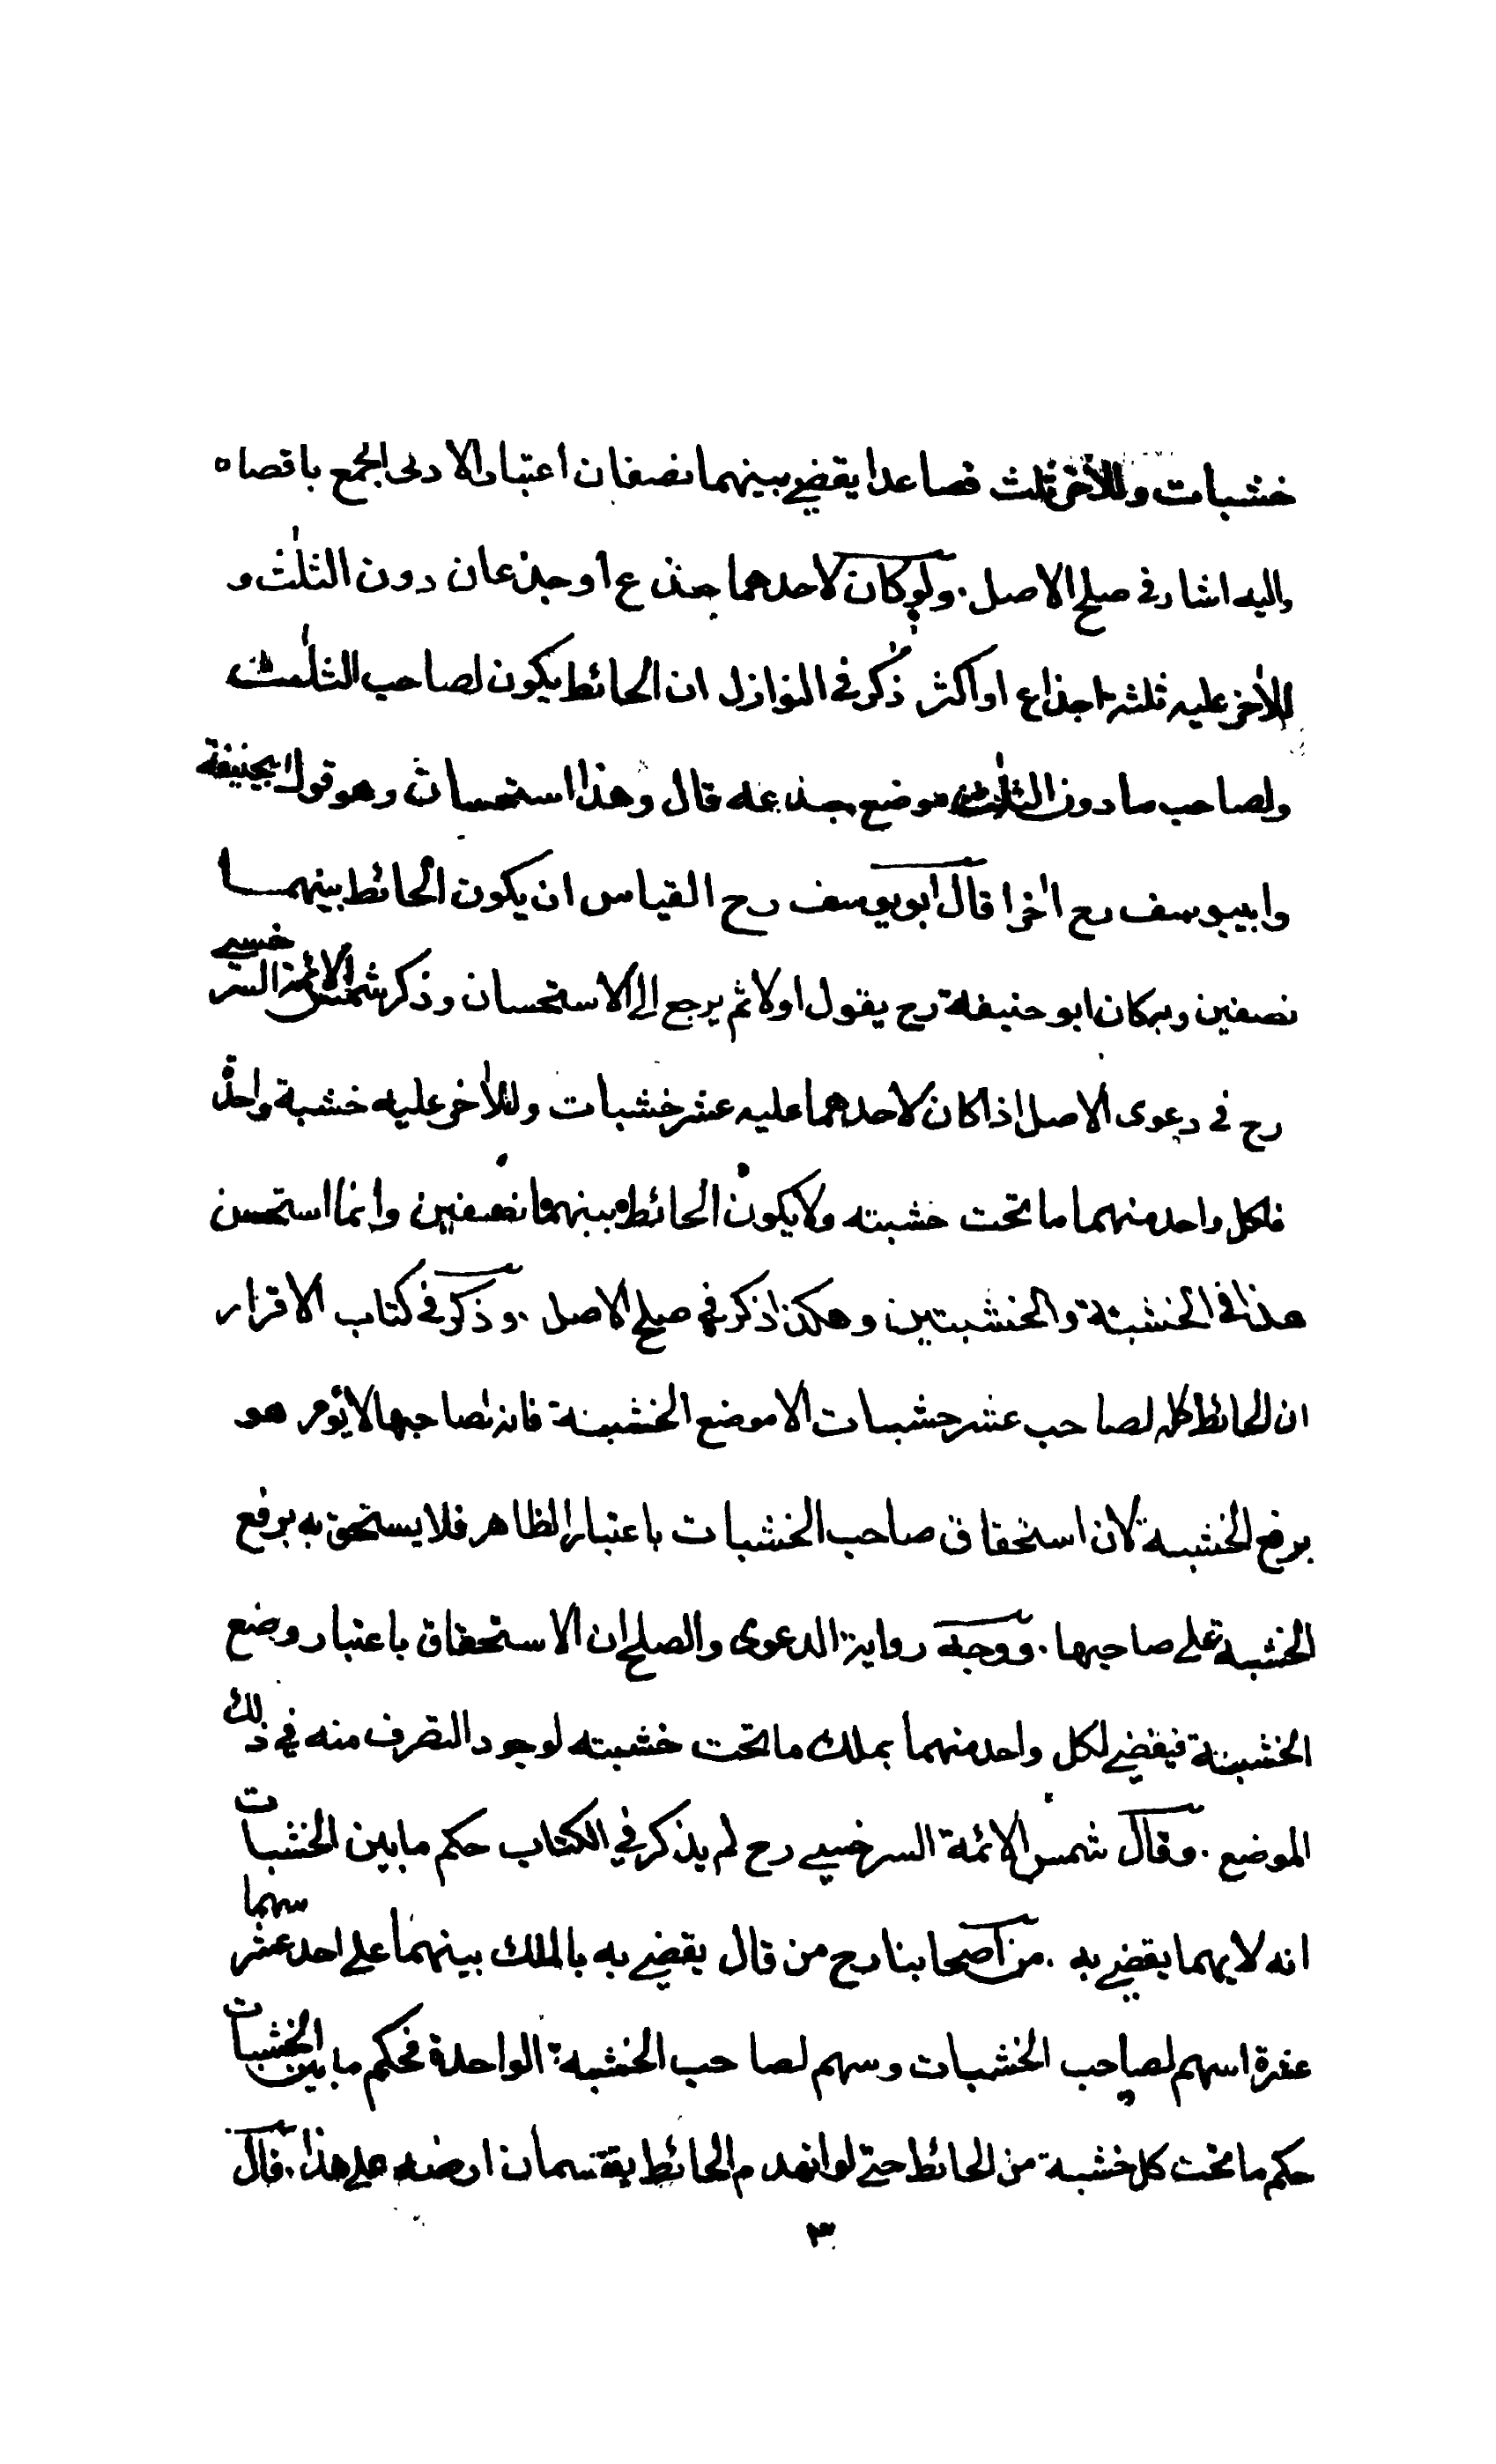 خشبات وللآخر ثلث فصاعدا يقضي بينهما نصفان اعتبارا لادنى الجمع باقصاه
واليه اشار في صلح الاصل . ولو كان لاحدهما جذع او جذعان دون الثلث و
للآخر عليه ثلثة اجذاع او اكثر ذكر في النوازل ان الحائط يكون لصاحب الثلث
ولصاحب ما دون الثلث موضع جذعه قال وهذا استحسان وهو قول ابيحنيفة
وابييوسف رح آخرا قال ابويوسف رح القياس ان يكون الحائط بينهما
نصفين وبه كان ابو حنيفة رح يقول اولا ثم يرجع الى الاستحسان وذكر شمس الائمة السرخسي
رح في دعوى الاصل اذا كان لاحدهما عليه عشر خشبات وللآخر عليه خشبة واحدة
فلكل واحد منهما ما تحت خشبته ولا يكون الحائط بينهما نصفين وانما استحسن
هذا في الخشبة والخشبتين وهكذا ذكر في صلح الاصل . وذكر في كتاب الاقرار
ان الحائط كله لصاحب عشر خشبات الا موضع الخشبة فانه لصاحبها لا يؤمر هو
برفع الخشبة لان استحقاق صاحب الخشبات باعتبار الظاهر فلا يستحق به برفع
الخشبة على صاحبها . ووجه رواية الدعوى والصلح ان الاستحقاق باعتبار وضع
الخشبة فيقضي لكل واحد منهما بملك ما تحت خشبته لوجود التصرف منه في ذلك
الموضع . وقال شمس الائمة السرخسي رح لم يذكر في الكتاب حكم ما بين الخشبات
انه لايهما يقضي به . من اصحابنا رح من قال يقضي به بالملك بينهما على احد عشر سهما
عشرة اسهم لصاحب الخشبات وسهم لصاحب الخشبة الواحدة فحكم ما بين الخشبات
حكم ما تحت كل خشبة من الحائط حتى لو انهدم الحائط يقتسمان ارضه على هذا . قال
٣